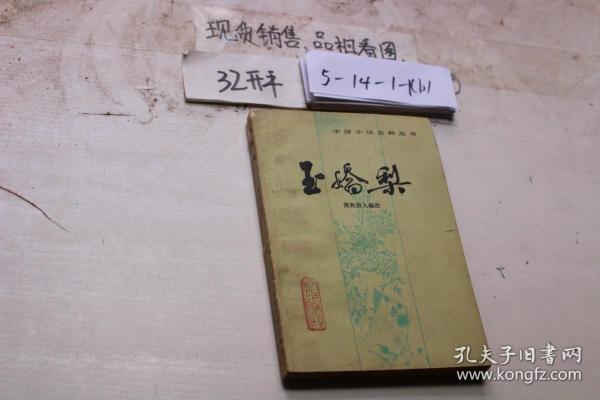 现货销售、品相看图.
32开平
5-14-1-K61
中国小说史料丛书
玉嬌梨
荑秋散人编次
孔夫子旧书网
www.kongfz.com